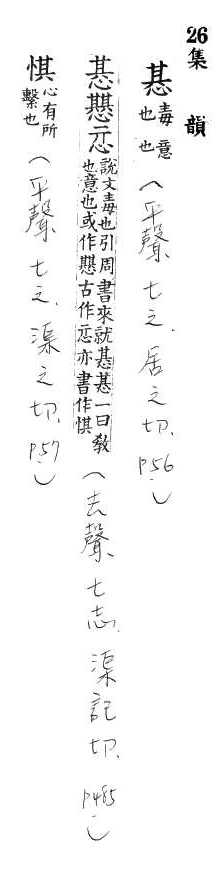 26
集韻
惎毒也意也（平聲、七之、居之切、P56）
惎𢡄㤅說文毒也引周書來就惎惎一曰教也意也或作𢡄古作㤅亦書作惎（去聲、七志、渠記切、P485）
惎心有所繫也（平聲、七之、渠之切、P57）